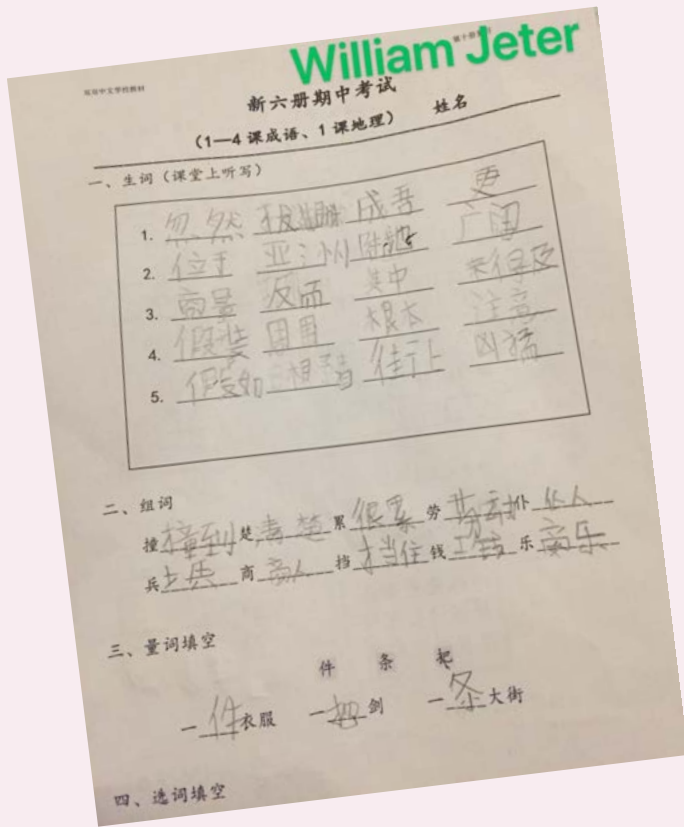 William Jeter
双双中文学校教材
新六册期中考试
（1—4 课成语、1 课地理） 姓名
一、生词（课堂上听写）
1. 忽然 成语 更
2. 位于 亚洲 陆地 广阔
3. 商量 反而 其中 来得及
4. 假装 周围 根本 注意
5. 假如 相 街上 凶猛
二、组词
撞撞到 楚清楚 累很累 劳劳动 仆仆人
兵士兵 商商人 挡挡住 钱工钱 乐音乐
三、量词填空
件 条 把
一件衣服 一把剑 一条大街
四、选词填空